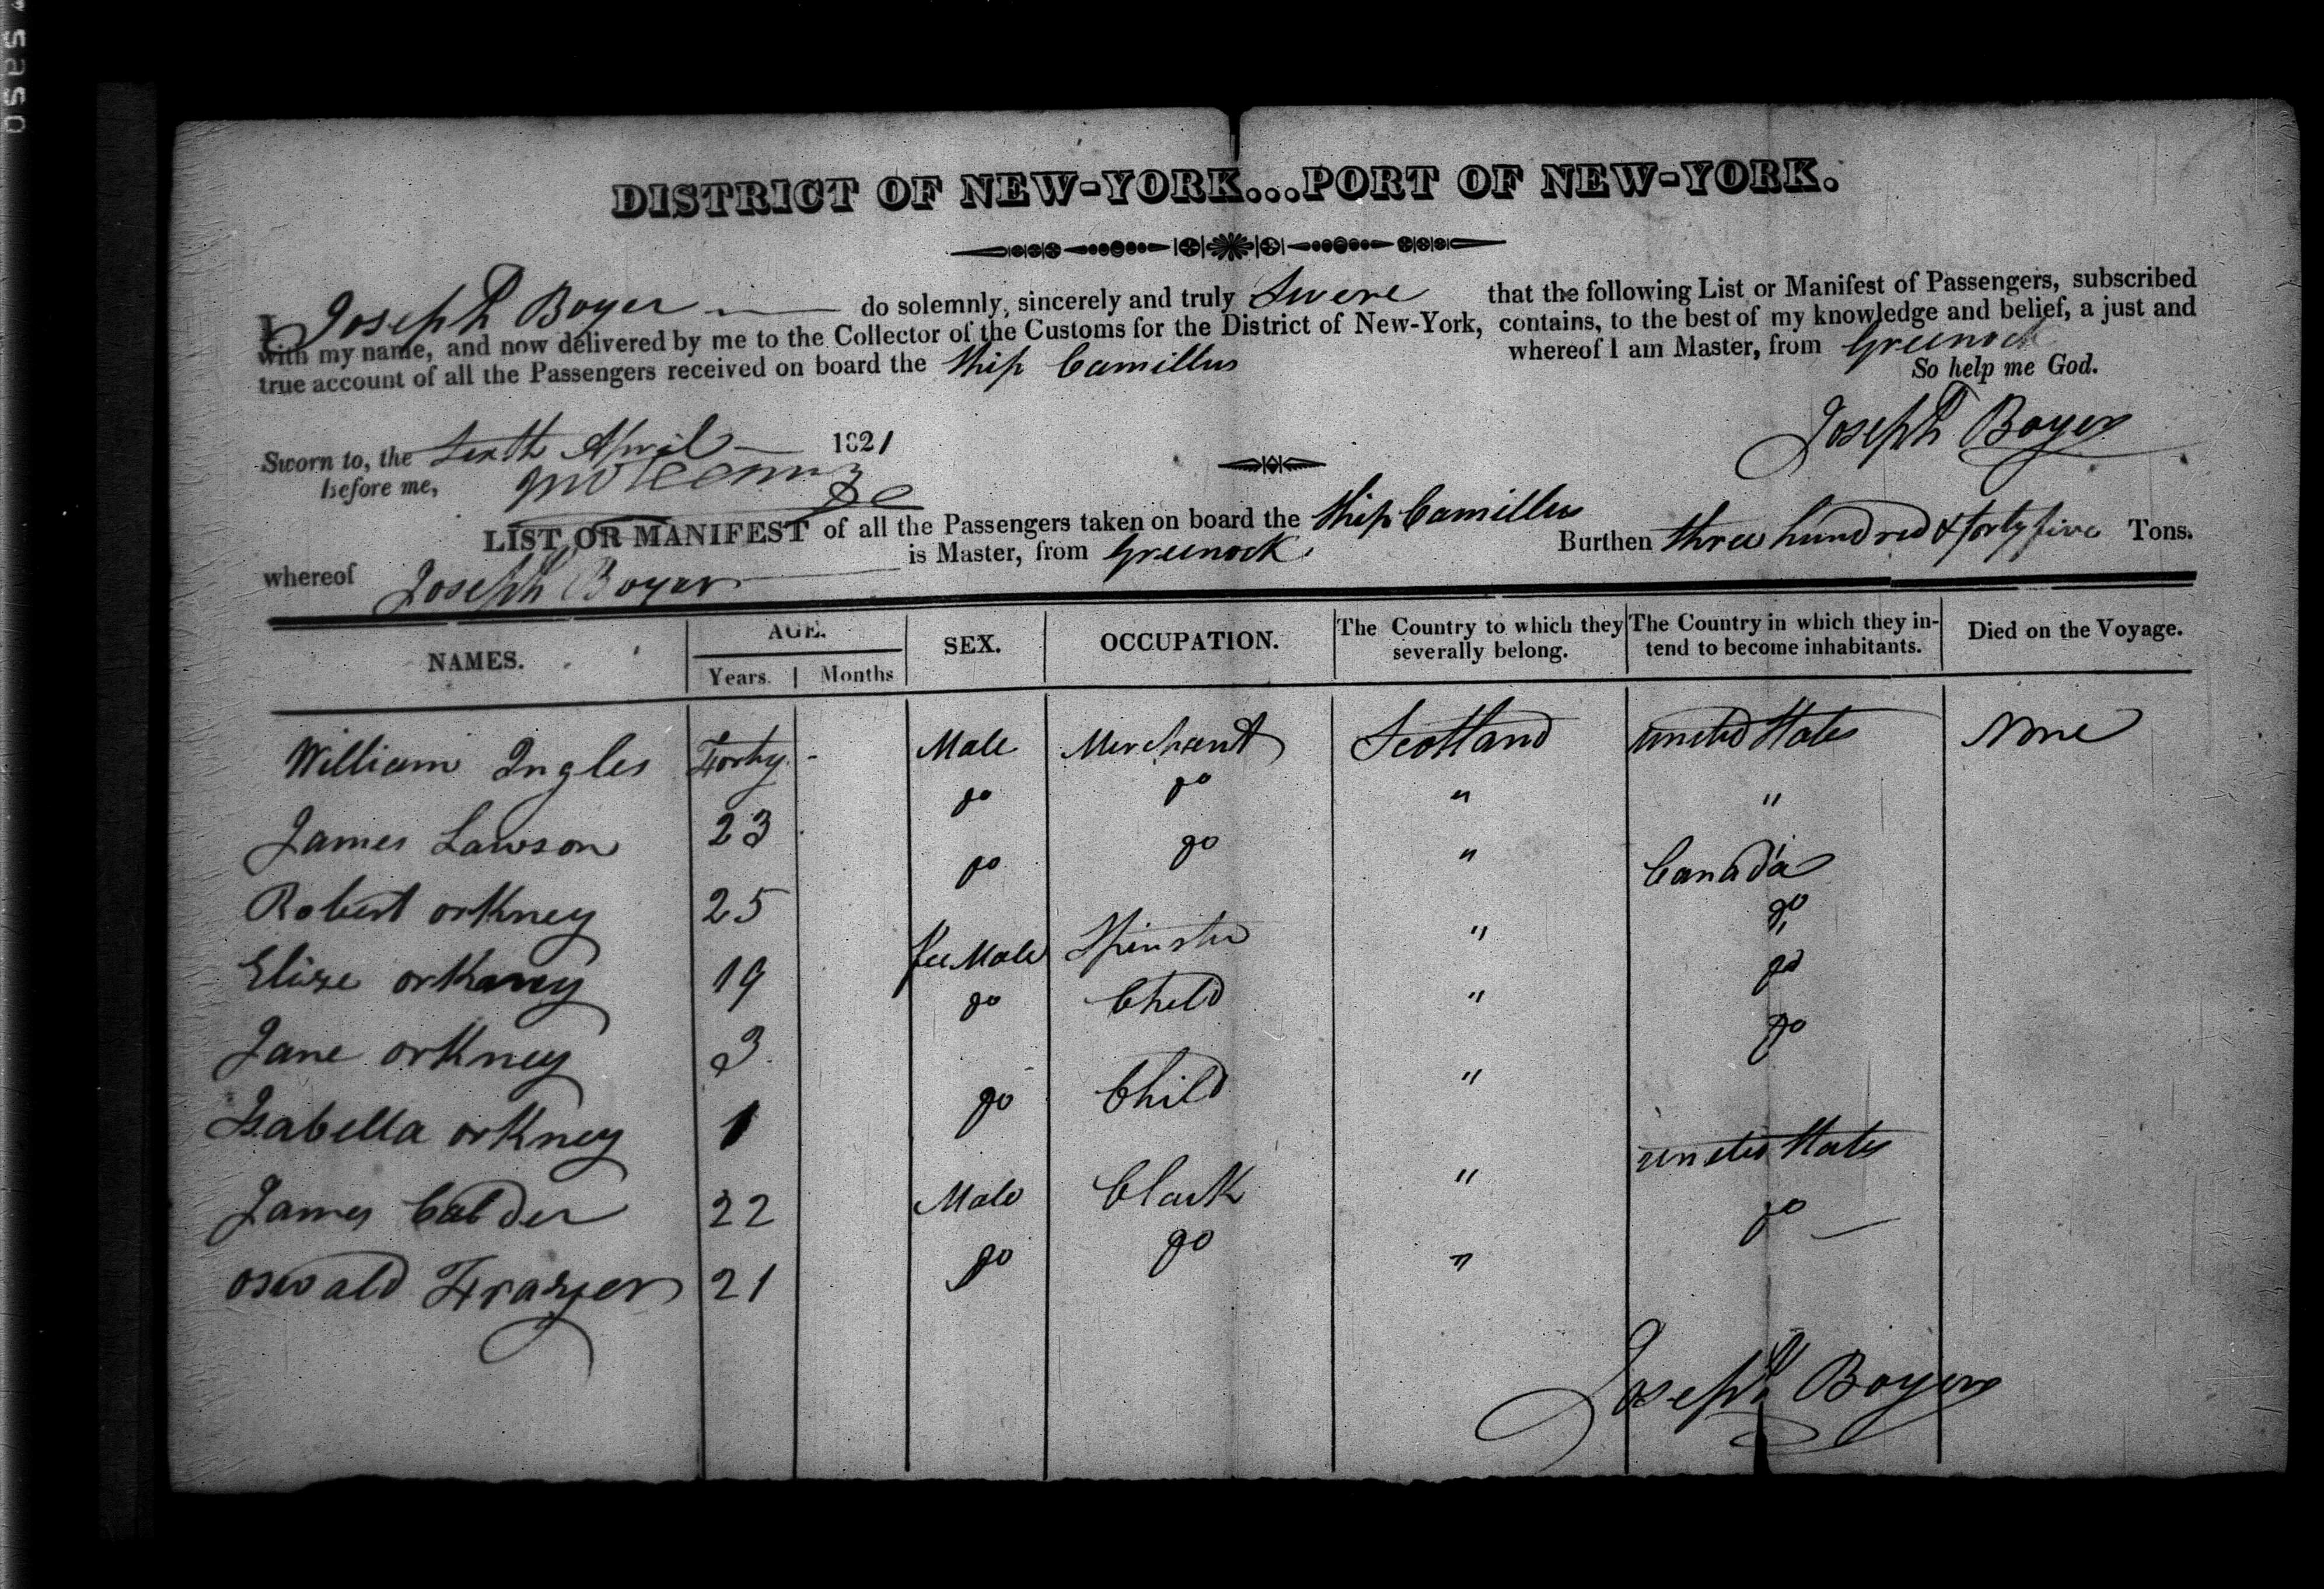 DISTRICT OF NEW-YORK...PORT OF NEW-YORK.
I Joseph Boyer do solemnly, sincerely and truly Swere that the following List or Manifest of Passengers, subscribed
with my name, and now delivered by me to the Collector of the Customs for the District of New-York, contains, to the best of my knowledge and belief, a just and
true account of all the Passengers received on board the Ship Camillus whereof I am Master, from Greenock
So help me God.
Sworn to, the Sixth April 1821
Joseph Boyer
before me,
LIST OR MANIFEST of all the Passengers taken on board the Ship Camillus
whereof Joseph Boyer is Master, from Greenock. Burthen three hundred & forty five Tons.
NAMES. AGE. Years. Months SEX. OCCUPATION. The Country to which they severally belong. The Country in which they intend to become inhabitants. Died on the Voyage.
William Ingles Forty - Male Merchant Scotland united States None
James Lawson 23 do do " "
Robert orkney 25 do do " Canada
Elize orkney 19 feeMale Spinster " do
Jane orkney 3 do Child " do
Isabella orkney 1 do Child " do
James Calder 22 Male Clark " united States
oswald Frazer 21 do do " do
Joseph Boyer